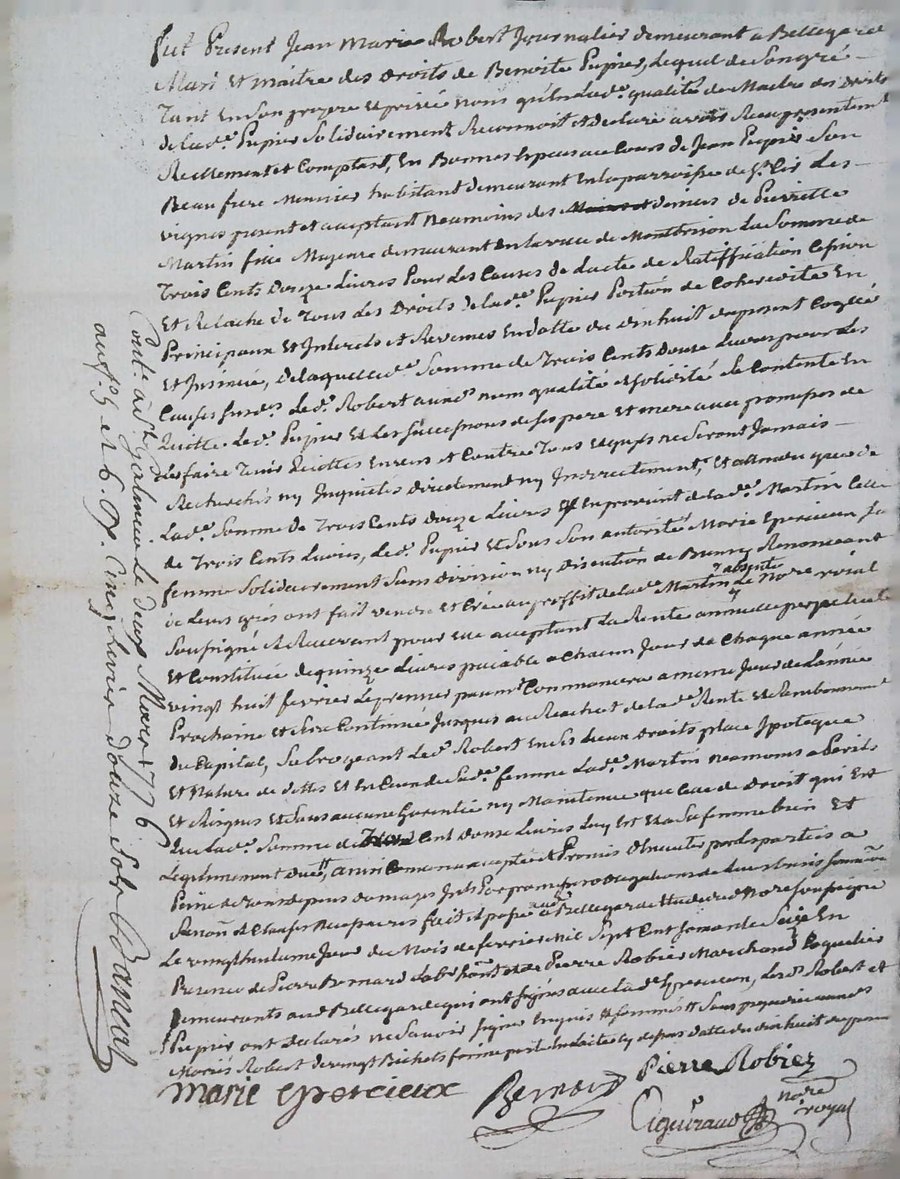 fut Present Jean Marie Robert Journalier demeurant a Bellegarde
Mari et maitre des droits de Benoite Pupier, lequel de Son gré
Tant en Son propre et privé nom qu'en lad.e qualité de Maitre des droits
de lad.e Pupier Solidairement Reconnoit et declare avoir Reçu presentemt
Reellement et Comptant, En Bonnes Especes au Cours de Jean Pupier Son
Beau frere Meunier habitant demeurant En la parroisse de St Cir les
vignes present et acceptant neamoins des deniers de Pierrette
Martin fille Majeure demeurant en la de Montbrison La Somme de
Trois Cents douze Livres Pour les Causes de lacte de Ratiffication Cession
Et Relache de Tous les Droits de lad.e Pupier Portion de Coheredité En
Principaux Et Interets et Revenus En datte du dixhuit du present Controllé
Et Insinué, de laquelle Somme de Trois Cents douze Livres pour les
Causes susd.es led.t Robert auxd. nom qualité et Solidité Se Contente En
Quitte led.t Pupier Et les Successions de Ses pere Et mere avec promesse de
Les faire Tenir Quittes Envers et Contre Tous et quils ne Seront Jamais
Recherchés ny Inquietés directement ny Indirectement, et attendu que de
Lad.e Somme de Trois Cents douze Livres Il En provient de lad.e Martin Celle
de Trois Cents Livres, led.t Pupier Et Sous Son autorité Marie Epercieux Sa
femme Solidairement Sans division ny discution de Renonceant
de Leurs grés ont fait vendu et Créé au proffit de lad.e Martin absente Le No.re roial
Soussigné et Recevant pour Elle acceptant La Rente annuelle perpetuelle
Et Constituée de quinze Livres paiable a Chacun Jour de Chaque année
vingt huit fevrier Le premier paiemt Commencera a meme Jour de Lannée
Prochaine et Sera Continuée Jusques au Reachect de lad.e Rente Et Remboursemt
du Capital, Subrogeant led.t Robert En Ses Lieux droits place Ipoteque
Et Nature de dettes Et En Ceux de Sad.e femme Lad.e Martin neamoins a Perils
Et Risques et Sans aucune Garentie ny Maintenue que Celle de droit qui Est
que Lad.e Somme de Cent douze Livres Luy Est Et a Sa femme bien Et
Legitimement due, ainsi Convenu accepté et Promis Observer par les parties a
Peine de Tous depens domages Interets
Et Clauses fait et passé aud. Bellegarde Etude du No.re Soussigné
Le vingthuitieme Jour du Mois de fevrier Mil Sept Cent Soixante Seize En
Presence de Pierre Bernard et de Pierre Robier Marchand
demeurants aud Bellegarde qui ont Signés avec lad.e Epercieux, les d. Robert et
Pupier ont declarés ne Savoir Signer Enquis et Sommés
Mariés Robert de vingt Bichets dud. acte cy dessus datté du dixhuit du present
Marie epercieux
Bernard
Pierre Robier
Cigeuraud nore royal
Contr.é a St galmier Le deux Mars 1776
Cinq Livres douze Sols